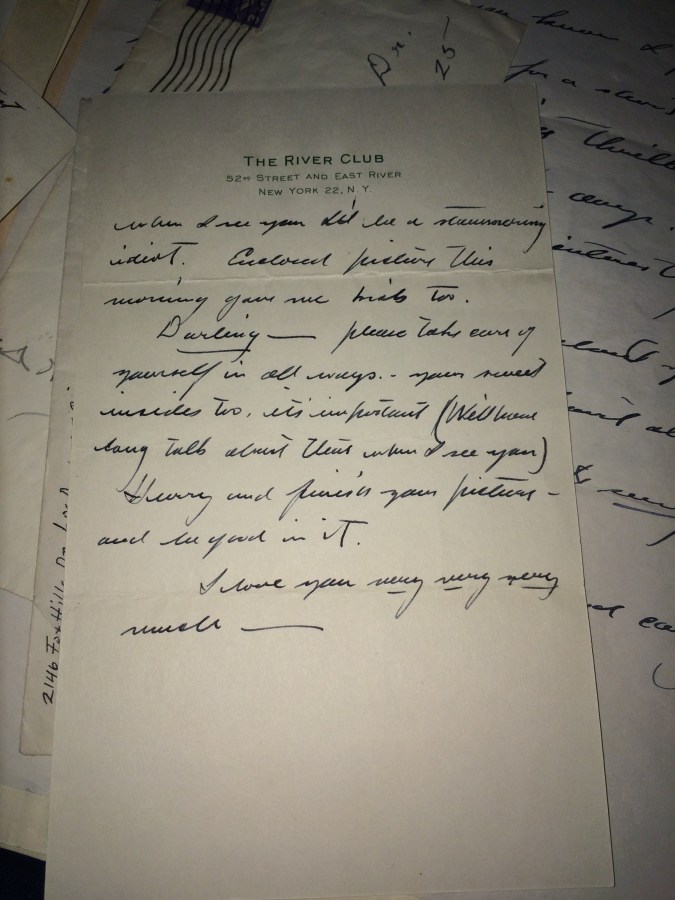 Dr.
25-
THE RIVER CLUB
52ND STREET AND EAST RIVER
NEW YORK 22, N.Y.
when I see you I'll be a stammering
idiot. Enclosed picture this
morning gave me too.
Darling — please take care of
yourself in all ways. - your sweet
insides too. it's important (We'll have
long talk about this when I see you)
Hurry and finish your picture -
and be good in it.
I love you very very very
much —
2146 Fox Hills Dr.
for a